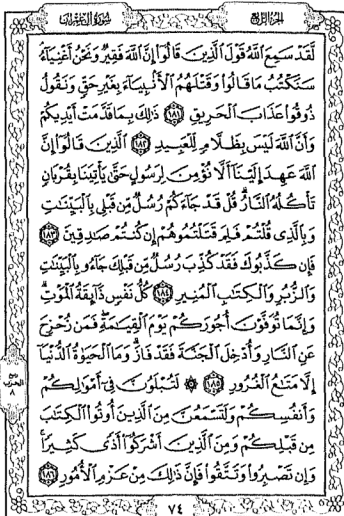 الجزء الرابع
سورة آل عمران
لَّقَدْ سَمِعَ اللَّهُ قَوْلَ الَّذِينَ قَالُوا إِنَّ اللَّهَ فَقِيرٌ وَنَحْنُ أَغْنِيَاءُ
سَنَكْتُبُ مَا قَالُوا وَقَتْلَهُمُ الْأَنبِيَاءَ بِغَيْرِ حَقٍّ وَنَقُولُ
ذُوقُوا عَذَابَ الْحَرِيقِ ١٨١ ذَٰلِكَ بِمَا قَدَّمَتْ أَيْدِيكُمْ
وَأَنَّ اللَّهَ لَيْسَ بِظَلَّامٍ لِّلْعَبِيدِ ١٨٢ الَّذِينَ قَالُوا إِنَّ
اللَّهَ عَهِدَ إِلَيْنَا أَلَّا نُؤْمِنَ لِرَسُولٍ حَتَّىٰ يَأْتِيَنَا بِقُرْبَانٍ
تَأْكُلُهُ النَّارُ قُلْ قَدْ جَاءَكُمْ رُسُلٌ مِّن قَبْلِي بِالْبَيِّنَاتِ
وَبِالَّذِي قُلْتُمْ فَلِمَ قَتَلْتُمُوهُمْ إِن كُنتُمْ صَادِقِينَ ١٨٣
فَإِن كَذَّبُوكَ فَقَدْ كُذِّبَ رُسُلٌ مِّن قَبْلِكَ جَاءُو بِالْبَيِّنَاتِ
وَالزُّبُرِ وَالْكِتَابِ الْمُنِيرِ ١٨٤ كُلُّ نَفْسٍ ذَائِقَةُ الْمَوْتِ
وَإِنَّمَا تُوَفَّوْنَ أُجُورَكُمْ يَوْمَ الْقِيَامَةِ فَمَن زُحْزِحَ
عَنِ النَّارِ وَأُدْخِلَ الْجَنَّةَ فَقَدْ فَازَ وَمَا الْحَيَاةُ الدُّنْيَا
إِلَّا مَتَاعُ الْغُرُورِ ١٨٥ ۞ لَتُبْلَوُنَّ فِي أَمْوَالِكُمْ
وَأَنفُسِكُمْ وَلَتَسْمَعُنَّ مِنَ الَّذِينَ أُوتُوا الْكِتَابَ
مِن قَبْلِكُمْ وَمِنَ الَّذِينَ أَشْرَكُوا أَذًى كَثِيرًا
وَإِن تَصْبِرُوا وَتَتَّقُوا فَإِنَّ ذَٰلِكَ مِنْ عَزْمِ الْأُمُورِ ١٨٦
ربع
الحزب
٨
٧٤